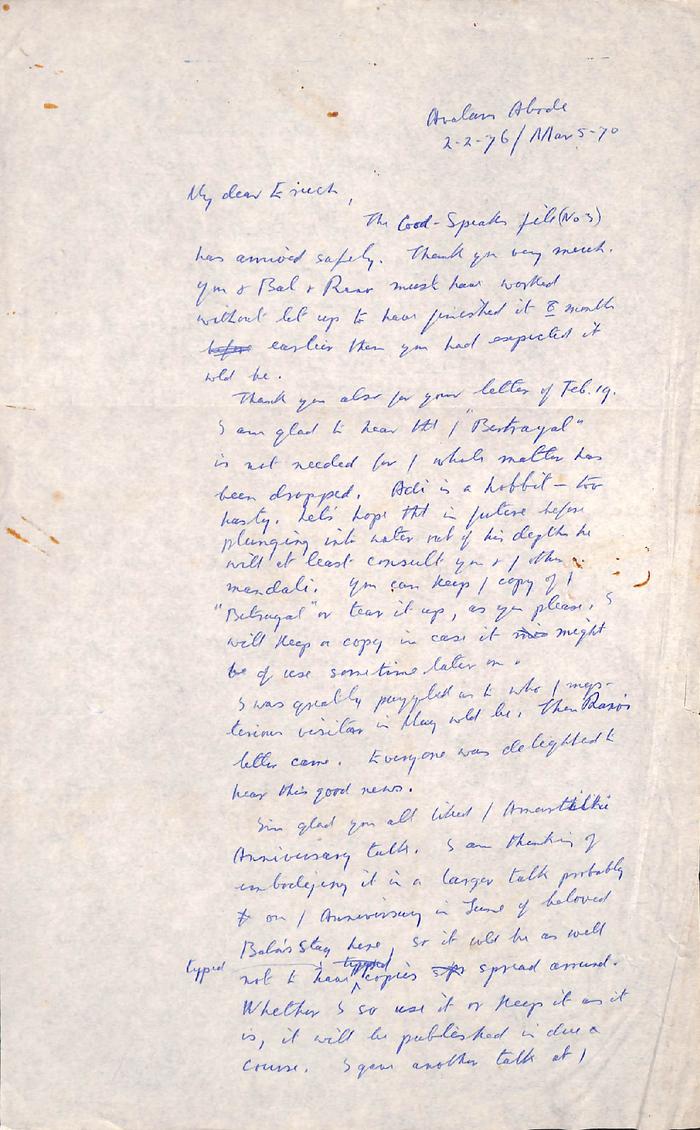 Avatar's Abode
2-2-76 / Mar 5-70
My dear Eruch,
The God-Speaks file (No 3)
has arrived safely. Thank you very much.
You & Bal & Rano must have worked
without let up to have finished it a month
before earlier than you had expected it
wld be.
Thank you also for your letter of Feb. 19.
I am glad to hear tht / "Betrayal"
is not needed for / whole matter has
been dropped. Adi is a hobbit — too
hasty. Let's hope tht in future before
plunging into water out of his depth he
will at least consult you & / other
mandali. You can keep / copy of /
"Betrayal" or tear it up, as you please. I
will keep a copy in case it might
be of use sometime later on.
I was greatly puzzled as to who / mys-
terious visitor in May wld be. Then Rano's
letter came. Everyone was delighted to
hear this good news.
I'm glad you all liked / Amartithi
Anniversary talk. I am thinking of
embodying it in a larger talk probably
on / Anniversary in June of beloved
Baba's Stay here, so it wld be as well
typed
not to have typed copies spread around.
Whether I so use it or keep it as it
is, it will be published in due
course. I gave another talk at /